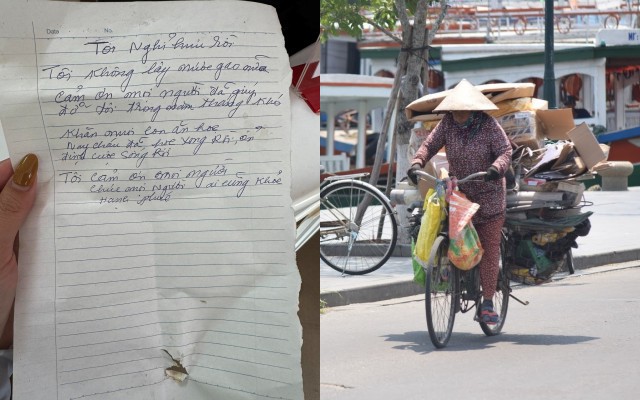 Date No.
Tôi Nghỉ hưu rồi
Tôi Không lấy mước gạo nữa
Cảm ơn mọi người đã giúp
đỡ tôi trong năm tháng Khó
Khăn nuôi con ăn học
Nay cháu đã học song Rồi, ổn
định cuộc sống Rồi
Tôi cảm ơn mọi người
chúc mọi người ai cũng Khỏe
Hạnh phúc